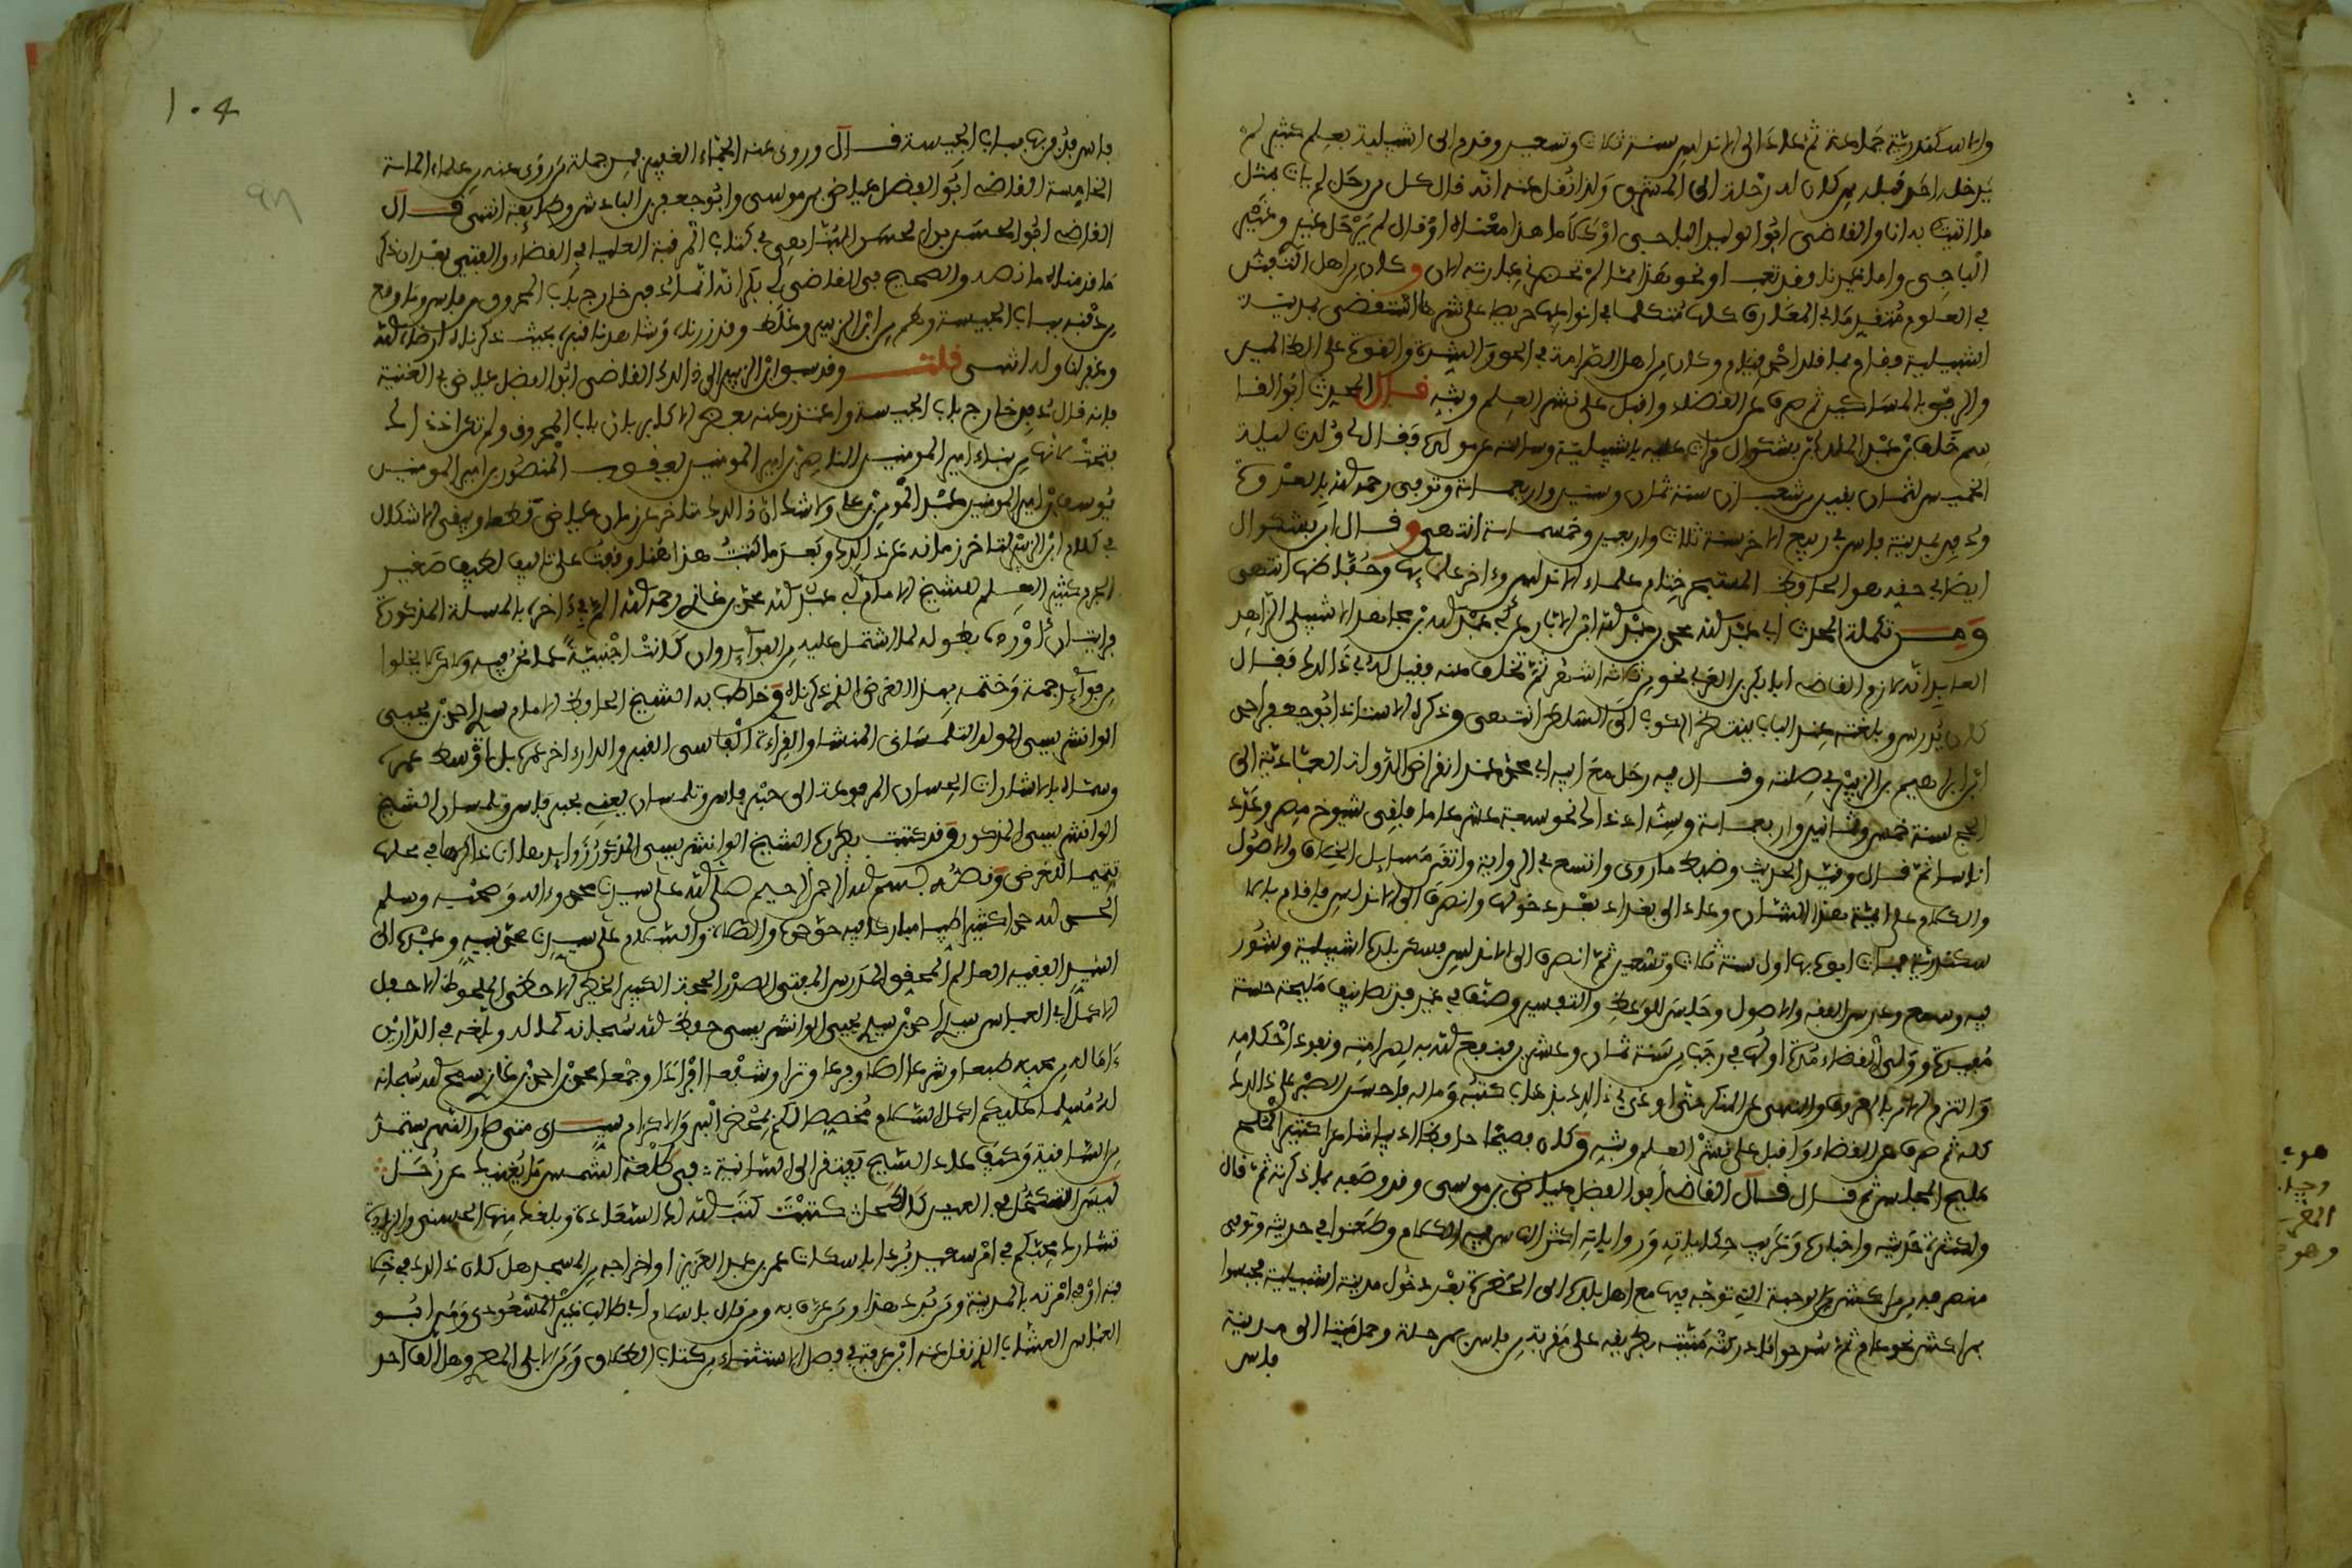 والاسكندرية جماعة ثم عاد الى الاندلس سنة ثلاث وتسعين وقدم الى اشبيلية بعلم كثير لم
يدخله احد قبله ممن كان له رحلة الى المشرق ولذا نقل عنه انه قال كل من رحل لم يات بمثل
ما اتيت به انا والقاضي ابو الوليد الباجي او كلاما هذا معناه او قال لم يرحل غيري وغير
الباجي واما غيرنا فقد تعب او نحو هذا مما لم تحضرني عبارته الان وكان من اهل التفنن
في العلوم متقدما في المعارف كلها متكلما في انواعها حريصا على نشرها استقضي بمدينة
اشبيلية فقام بما قلد اجمل قيام وكان من اهل الصرامة في الحق والشدة والقوة على الظالمين
والرفق بالمساكين ثم صرف عن القضاء واقبل على نشر العلم وبثه قال المحدث ابو القا
سم خلف بن عبد الملك بن بشكوال قرات عليه باشبيلية وسالته عن مولده فقال لي ولدت ليلة
الخميس لثمان بقين من شعبان سنة ثمان وستين واربعمائة وتوفي رحمه الله بالعدوة
ودفن بمدينة فاس في ربيع الاخر سنة ثلاث واربعين وخمسمائة انتهى وقال ابن بشكوال
ايضا في حقه هو الحافظ المتبحر ختام علماء الاندلس واخر علمائها وحفاظها انتهى
ومن تكملة المحدث ابي عبد الله محمد بن عبد الله ابن الابار عن ابي عبد الله بن مجاهد الاشبيلي الزاهد
العابد انه لازم القاضي ابا بكر بن العربي نحو من ثلاثة اشهر ثم تخلف عنه فقيل له في ذلك فقال
كان يدرس وبغلته عند الباب ينتظر الركوب الى السلطان انتهى وذكره الاستاذ ابو جعفر احمد
ابن ابراهيم بن الزبير في صلته وقال فيه رحل مع ابيه ابي محمد عند انقراض الدولة العبادية الى
الحج سنة خمس وثمانين واربعمائة وسنه اذ ذاك نحو سبعة عشر عاما فلقي شيوخ مصر وعدد
اناسا ثم قال وقيد الحديث وضبط ما روى واتسع في الرواية واتقن مسايل الخلاف والاصول
والكلام على ايمة هذا الشان وعاد الى بغداد بعد دخولها وانصرف الى الاندلس فاقام بالا
سكندرية فمات ابوه بها اول سنة ثلاث وتسعين ثم انصرف الى الاندلس فسكن بلده اشبيلية وشوور
فيه وسمع ودرس الفقه والاصول وجلس للوعظ والتفسير وصنف في غير فن تصانيف مليحة حسنة
مفيدة وولي القضاء مدة اولها في رجب من سنة ثمان وعشرين فنفع الله به لصرامته ونفوذ احكامه
والتزم الامر بالمعروف والنهي عن المنكر حتى اوذي في ذلك بذهاب كتبه وماله فاحسن الصبر على ذلك
كله ثم صرف عن القضاء واقبل على نشر العلم وبثه وكان فصيحا حافظا اديبا شاعرا كثير الملح
مليح المجلس ثم قال قال القاضي ابو الفضل عياض بن موسى وقد وصفه بما ذكرته ثم قال
ولكثرة حديثه واخباره وغريب حكاياته ورواياته اكثر الناس فيه الكلام وطعنوا في حديثه وتوفي
منصرفه من مراكش من الوجهة التي توجه فيها مع اهل بلده الى الحضرة بعد دخول مدينة اشبيلية فحبسوا
بمراكش نحو عام ثم سرحوا فادركته منيته بطريقه على مقربة من فاس بمرحلة وحمل ميتا الى مدينة
فاس
١٠٤
فاس فدفن بها بباب الجيسة قال وروى عنه الجماء الغفير فمن جملة من روى عنه من علماء الماية
الخامسة القاضي ابو الفضل عياض بن موسى وابو جعفر بن الباذش وطايفة انتهى قال
القاضي ابو الحسن بن الحسن النباهي في كتاب المرقبة العليا في القضاء والفتيا بعد ان ذكر
ما قدمناه ما نصه والصحيح في القاضي ابي بكر انه انما دفن خارج باب المحروق من فاس وما وقع
من دفنه بباب الجيسة وهم من ابن الزبير وغلط وقد زرناه وشاهدنا قبره بحيث ذكرناه ارضاه الله
وغفر لنا وله انتهى قلت وقد سبق ابن الزبير الى ذلك القاضي ابو الفضل عياض في الغنية
فانه قال دفن خارج باب الجيسة واعتذر عنه بعض الاكابر بان باب المحروق ولم تكن اذ ذاك
فتحت لانها من بناء امير المومنين الناصر بن امير المومنين يعقوب المنصور بن امير المومنين
يوسف بن امير المومنين عبد المومن بن علي ولا شك ان ذلك متاخر عن زمان عياض قطعا ويبقى الاشكال
في كلام ابن الزبير لتاخر زمانه عن ذلك وبعد ما كتبت هذا هنا وقفت على تاليف لطيف صغير
الجرم كثير العلم للشيخ الامام ابي عبد الله محمد بن غازي رحمه الله الم في اخره بالمسالة المذكورة
فرايت ان اورده بطوله لما اشتمل عليه من الفوايد وان كانت اجنبية عما نحن فيه ولا يخلوا
من فوايد جمة وختمه بهذا الغرض الذي ذكرناه وخاطب به الشيخ الحافظ الامام سيدي احمد بن يحيى
الوانشريسي المولد التلمساني المنشا والقراءة الفاسي القبر والدار اخر عمره بل اوسط عمره
وسماه بالاشارات الحسان المرفوعة الى حبر فاس وتلمسان يعني بحبر فاس وتلمسان الشيخ
الوانشريسي المذكور وقد كتبت بطرره الشيخ الوانشريسي المذكور زوايد ها انا ذاكرها في محلها
تتميما للغرض ونصه بسم الله الرحمن الرحيم صلى الله على سيدنا محمد واله وصحبه وسلم
الحمد لله حمدا كثيرا طيبا مباركا فيه حق حمده والصلاة والسلام على سيدنا محمد نبيه وعبده الى
السيد الفقيه العالم المحقق المدرس المفتي الصدر الحجة الكبير الخطير الاحظى الملحوظ الاحفل
الاكمل ابي العباس سيدي احمد بن سيدي يحيى الوانشريسي حفظ الله سبحانه كماله وبلغه في الدارين
ءاماله من محبه طبعا وشرعا اصلا وفرعا وترا وشفعا افرادا وجمعا محمد بن احمد بن غازي سمح الله سبحانه
له مسلما عليكم اكمل السلام مخصصا لكم بمحض البر والاكرام سيدي متى صار القمر يستمد
من الشافية وكيف عاد الشيخ يفتقر الى الشانية : في طلعة الشمس ما يغنيك عن زحل :
ليس التكحل في العينين كالكحل كنتم كتب الله لنا السعادة وبلغكم منها الحسنى والزيادة
تشاور محبكم في امر سعيد بن المسيب بردا بلسكات عمر بن عبد العزيز او اخراجه من المسجد هل كان ذلك في خلا
فته او في امرته بالمدينة ومن برد هذا ومن عرف به ومن قال بلسكا وابي طالب غير المسعودي ومن ابو
العباس العشاب الذي نقل عنه ابن عرفة في فصل الاستثناء من كتاب الطلاق ومن الابلي المصري وهل الف احد